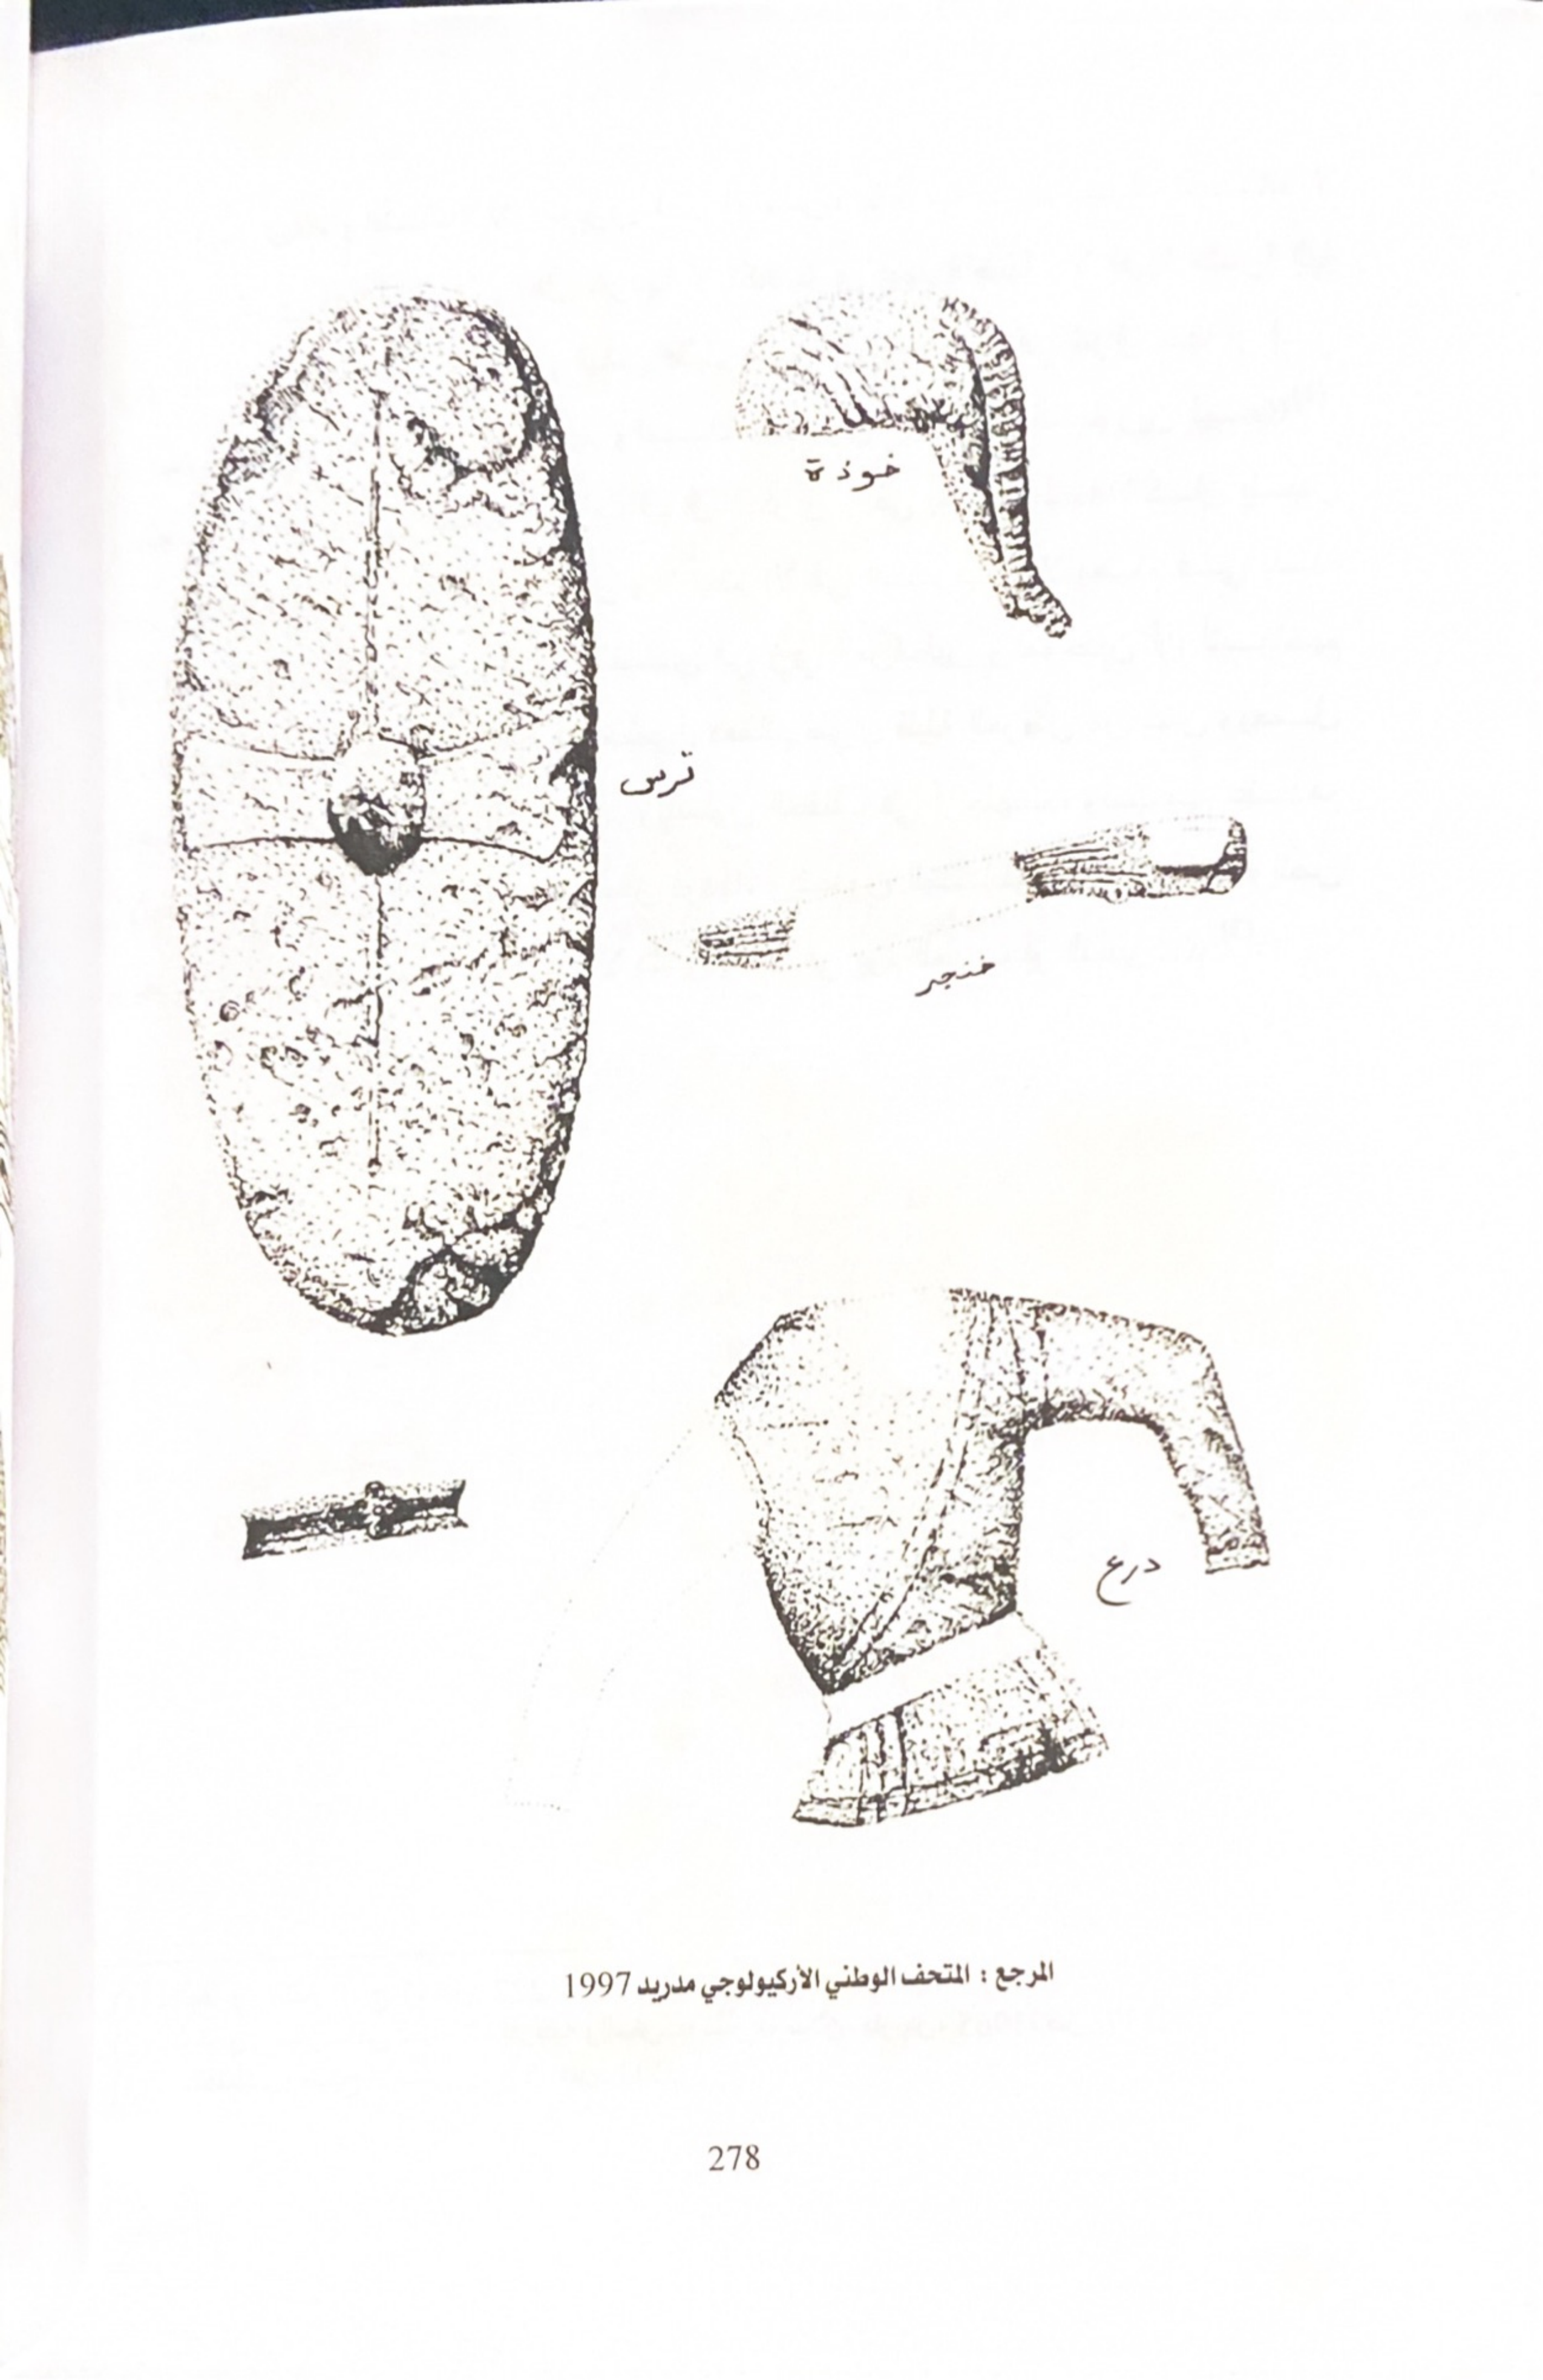 خوذة
ترس
خنجر
درع
المرجع : المتحف الوطني الأركيولوجي مدريد 1997
278